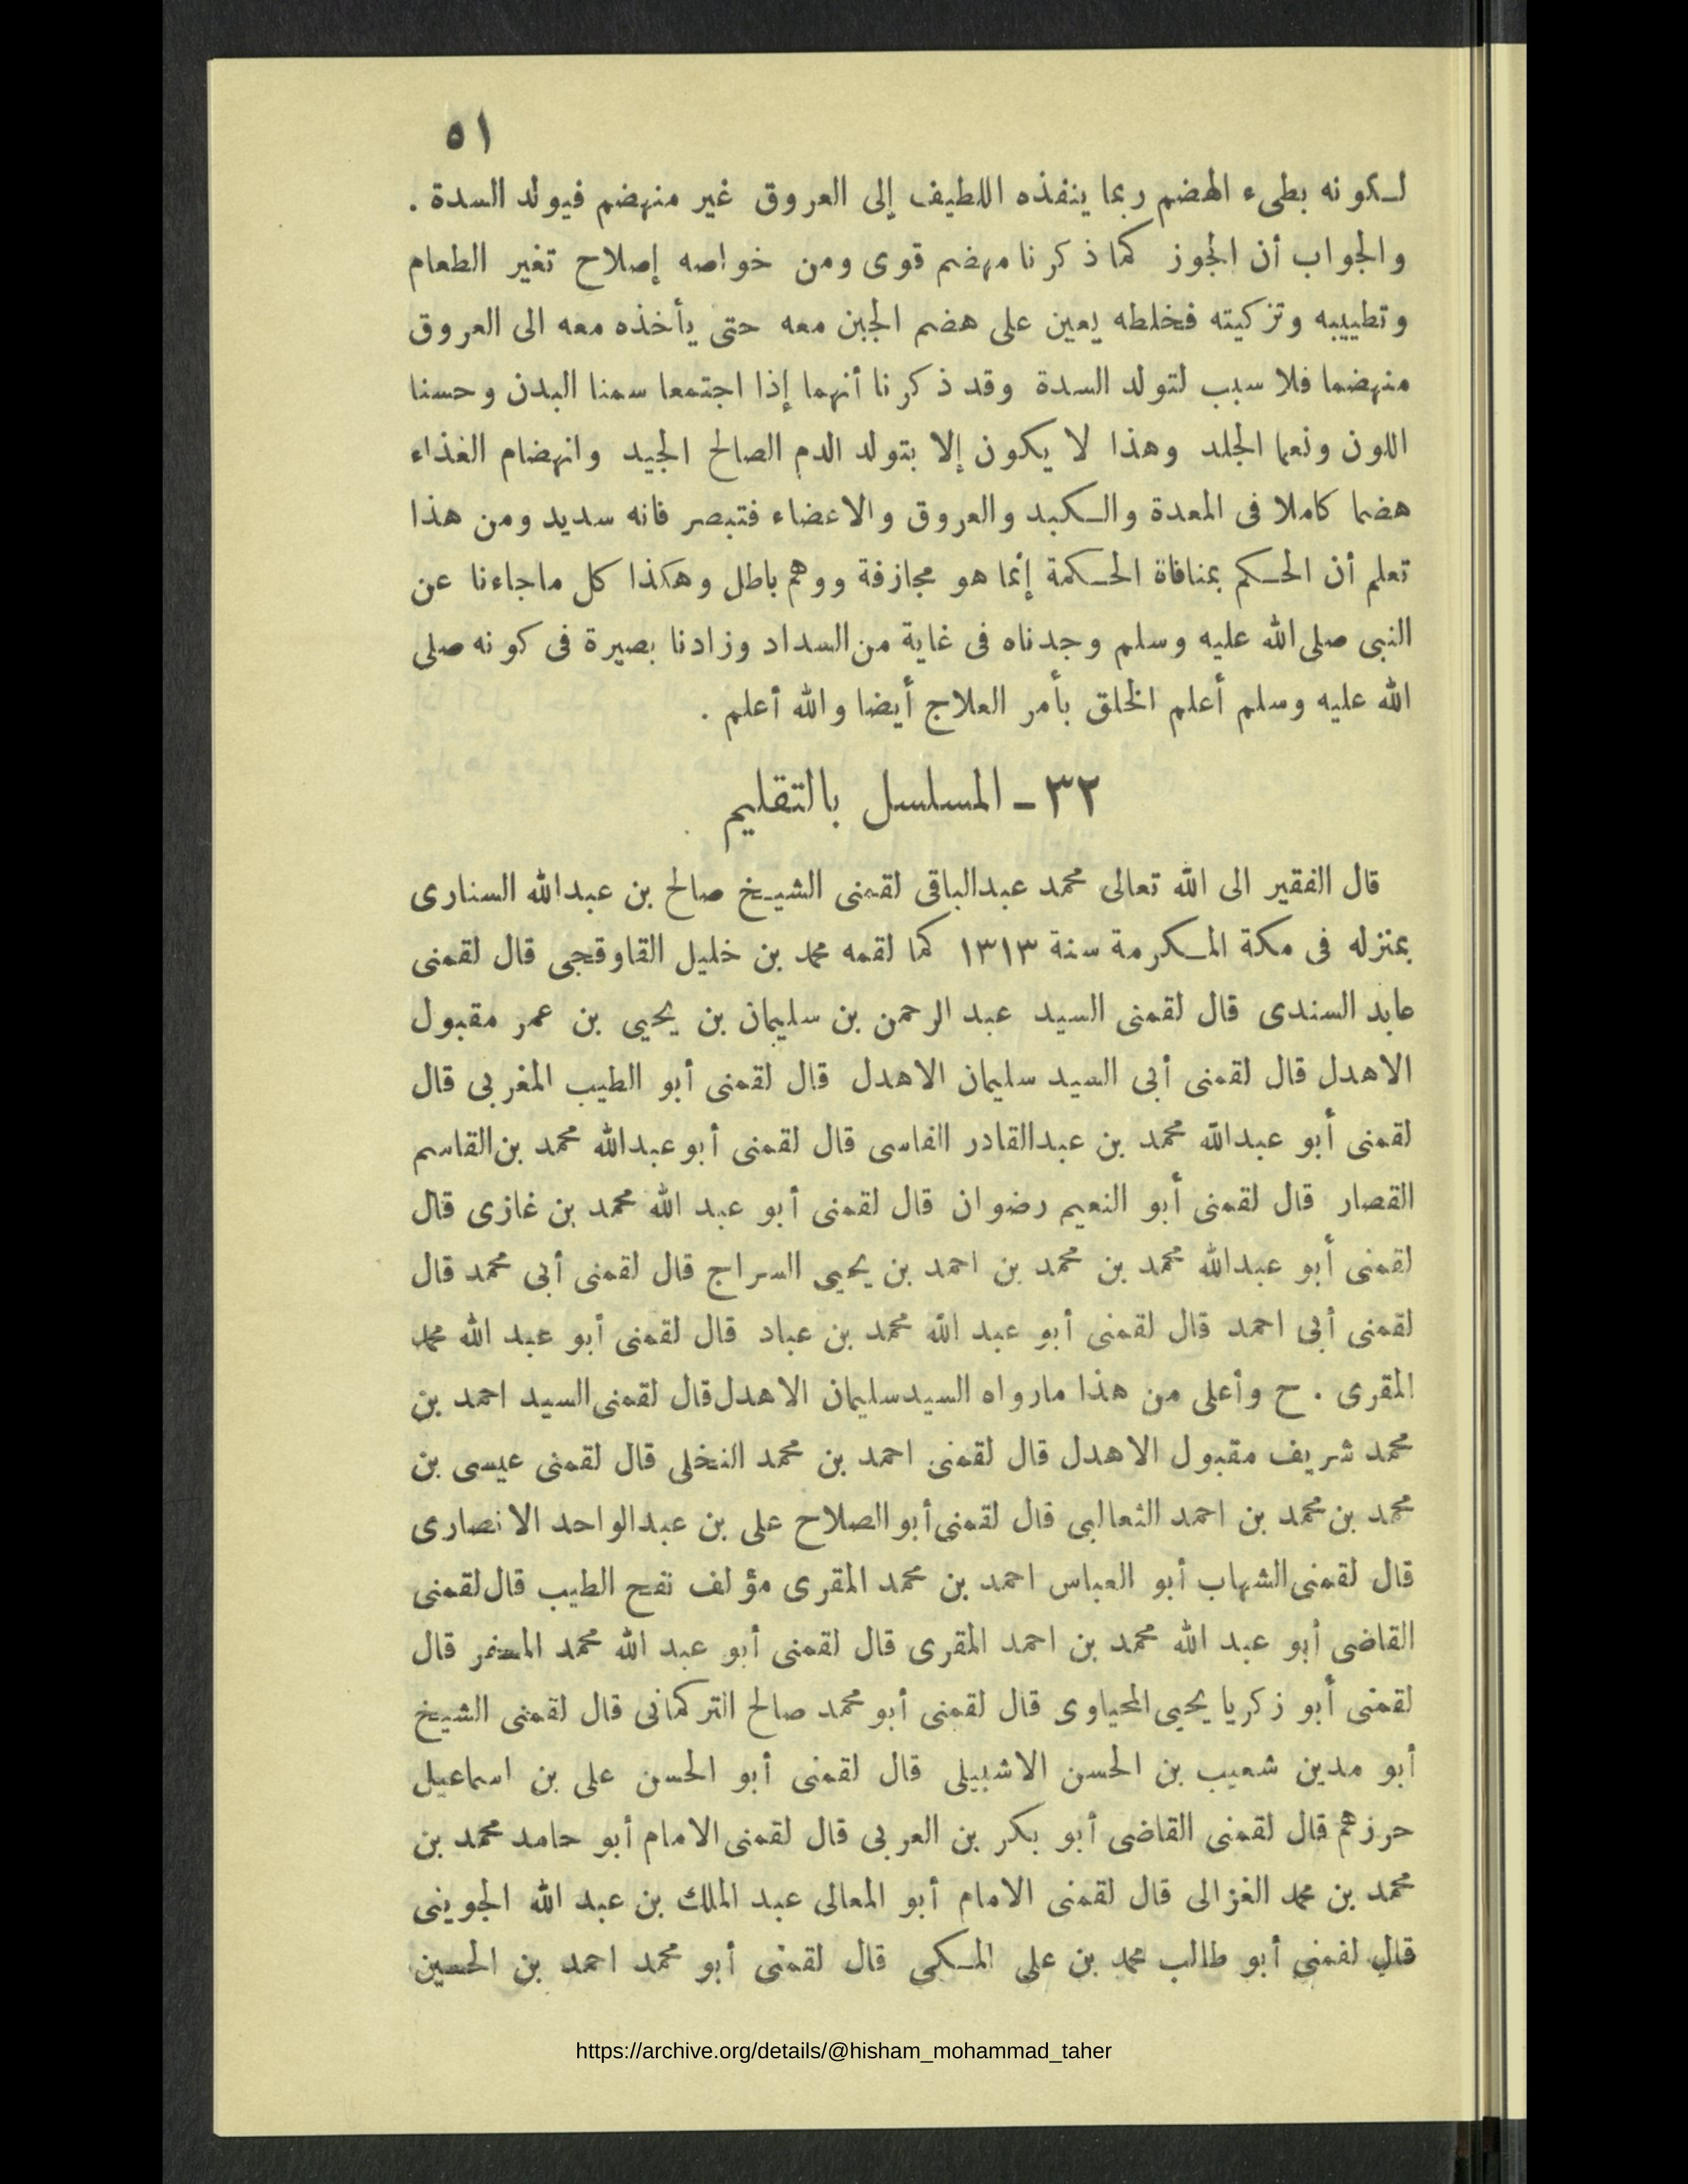 ٥١
لكونه بطىء الهضم ربما ينفذه اللطيف إلى العروق غير منهضم فيولد السدة .
والجواب أن الجوز كما ذكرنا مهضم قوى ومن خواصه إصلاح تغير الطعام
وتطييبه وتزكيته فخلطه يعين على هضم الجبن معه حتى يأخذه معه الى العروق
منهضما فلا سبب لتولد السدة وقد ذكرنا أنهما إذا اجتمعا سمنا البدن وحسنا
اللون ونعما الجلد وهذا لا يكون إلا بتولد الدم الصالح الجيد وانهضام الغذاء
هضما كاملا فى المعدة والكبد والعروق والاعضاء فتبصر فانه سديد ومن هذا
تعلم أن الحكم بمنافاة الحكمة إنما هو مجازفة ووهم باطل وهكذا كل ماجاءنا عن
النبى صلى الله عليه وسلم وجدناه فى غاية من السداد وزادنا بصيرة فى كونه صلى
الله عليه وسلم أعلم الخلق بأمر العلاج أيضا والله أعلم .
٣٢ - المسلسل بالتقليم
قال الفقير الى الله تعالى محمد عبدالباقى لقمنى الشيخ صالح بن عبدالله السنارى
بمنزله فى مكة المكرمة سنة ١٣١٣ كما لقمه محمد بن خليل القاوقجى قال لقمنى
عابد السندى قال لقمنى السيد عبد الرحمن بن سليمان بن يحيى بن عمر مقبول
الاهدل قال لقمنى أبى السيد سليمان الاهدل قال لقمنى أبو الطيب المغربى قال
لقمنى أبو عبدالله محمد بن عبدالقادر الفاسى قال لقمنى أبو عبدالله محمد بن القاسم
القصار قال لقمنى أبو النعيم رضوان قال لقمنى أبو عبد الله محمد بن غازى قال
لقمنى أبو عبدالله محمد بن محمد بن احمد بن يحيى السراج قال لقمنى أبى محمد قال
لقمنى أبى احمد قال لقمنى أبو عبد الله محمد بن عباد قال لقمنى أبو عبد الله محمد
المقرى . ح وأعلى من هذا مارواه السيد سليمان الاهدل قال لقمنى السيد احمد بن
محمد شريف مقبول الاهدل قال لقمنى احمد بن محمد النخلى قال لقمنى عيسى بن
محمد بن محمد بن احمد الثعالبى قال لقمنى أبو الصلاح على بن عبدالواحد الانصارى
قال لقمنى الشهاب أبو العباس احمد بن محمد المقرى مؤلف نفح الطيب قال لقمنى
القاضى أبو عبد الله محمد بن احمد المقرى قال لقمنى أبو عبد الله محمد قال
لقمنى أبو زكريا يحيى المحياوى قال لقمنى أبو محمد صالح التركمانى قال لقمنى الشيخ
أبو مدين شعيب بن الحسن الاشبيلى قال لقمنى أبو الحسن على بن اسماعيل
حرزهم قال لقمنى القاضى أبو بكر بن العربى قال لقمنى الامام أبو حامد محمد بن
محمد بن محمد الغزالى قال لقمنى الامام أبو المعالى عبد الملك بن عبد الله الجوينى
قال لقمنى أبو طالب محمد بن على المكى قال لقمنى أبو محمد احمد بن الحسين
https://archive.org/details/@hisham_mohammad_taher